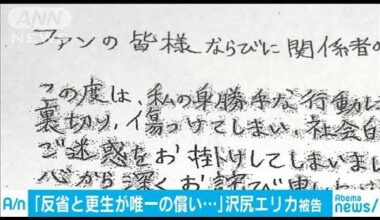 ANN
ANNnewsCH
ファンの皆様ならびに関係者の
この度は、私の身勝手な行動に
裏切り、傷つけてしまい、社会的
ご迷惑をお掛けしてしまいま
心から深くお詫び申し
A/n
「反省と更生が唯一の償い…」沢尻エリカ被告
Abema
news/